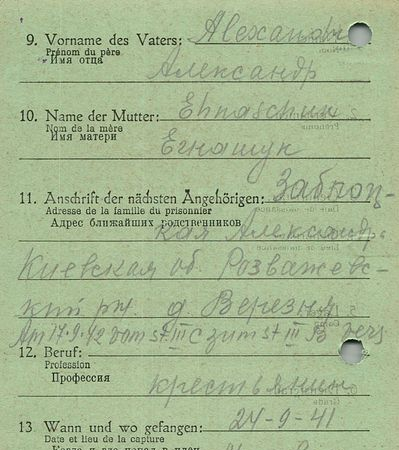 9. Vorname des Vaters: Alexander
Prénom du père
Имя отца
Александр
10. Name der Mutter: Ehnaschuk
Nom de la mère
Имя матери
Егнашук
11. Anschrift der nächsten Angehörigen:
Adresse de la famille du prisonnier
Адрес ближайших родственников
кая Александр.
Киевская об. Розважевс-
кий д. Верезня
Am 17.9.42 vom St III C zum St III B vers
12. Beruf:
Profession
Профессия
крестьянин
13 Wann und wo gefangen: 24-9-41
Date et lieu de la capture